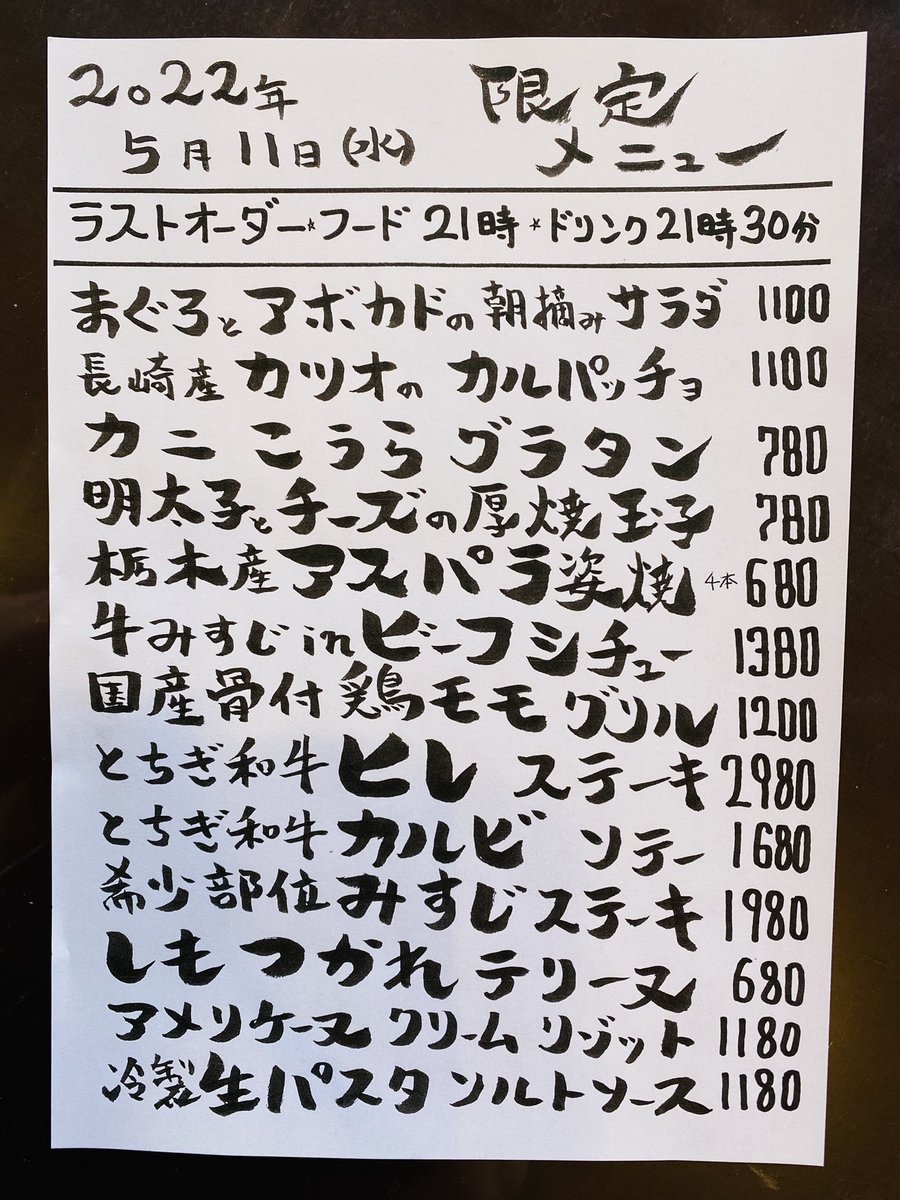 2022年 限定
5月11日(水) メニュー
ラストオーダー*フード 21時 *ドリンク21時30分
まぐろとアボカドの朝摘みサラダ 1100
長崎産 カツオの カルパッチョ 1100
カニ こうら グラタン 780
明太子とチーズの厚焼玉子 780
栃木産アスパラ姿焼 4本 680
牛みすじinビーフシチュー 1380
国産骨付鶏モモグリル 1200
とちぎ和牛ヒレ ステーキ 2980
とちぎ和牛カルビ ソテー 1680
希少部位みすじステーキ 1980
しもつかれテリーヌ 680
アメリケーヌ クリーム リゾット 1180
冷製生パスタ ソルトソース 1180